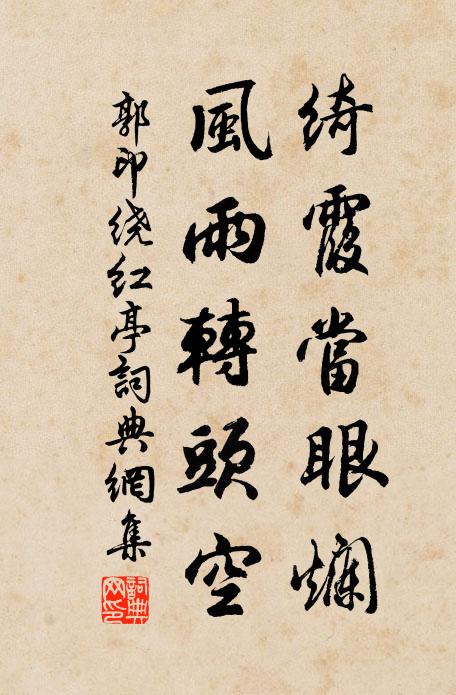 綺霞當眼爛
風雨轉頭空
郭印绕红亭詞典網集
詞典
网印